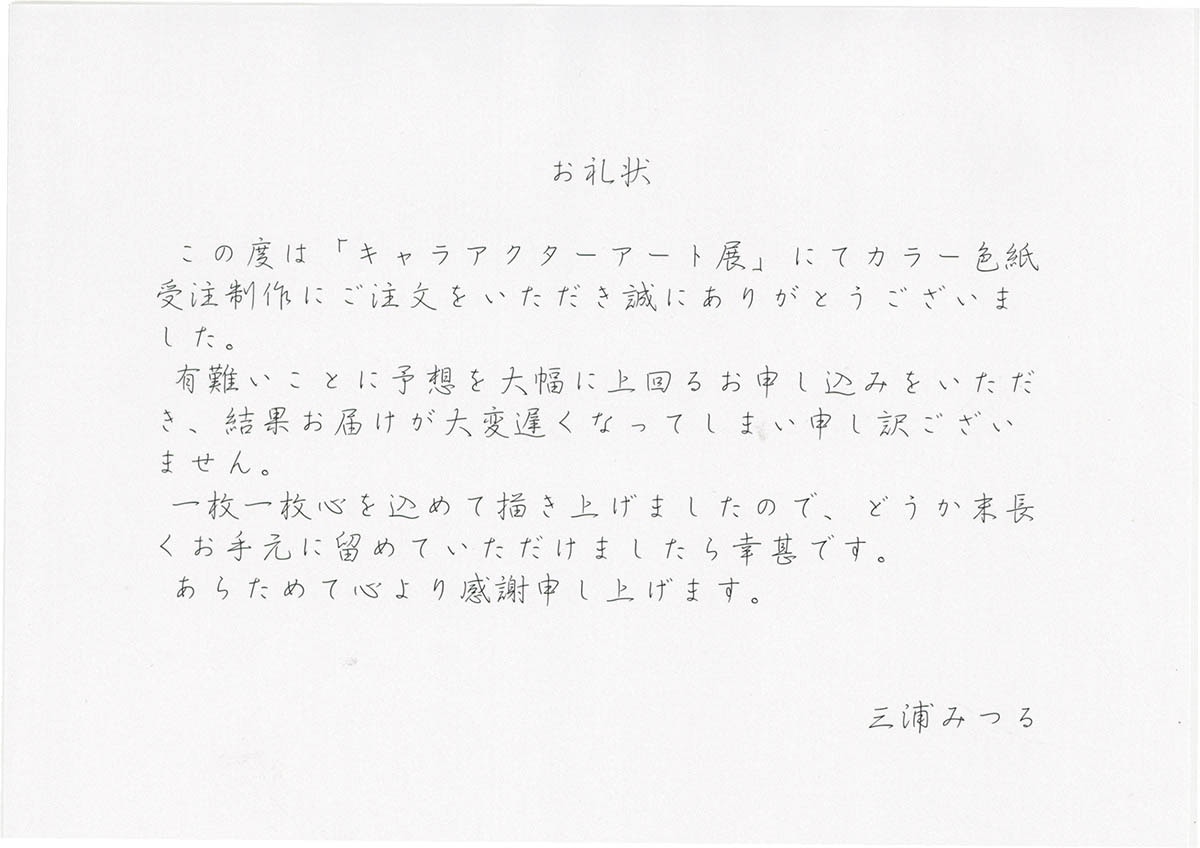 お礼状
この度は「キャラアクターアート展」にてカラー色紙
受注制作にご注文をいただき誠にありがとうございま
した。
有難いことに予想を大幅に上回るお申し込みをいただ
き、結果お届けが大変遅くなってしまい申し訳ござい
ません。
一枚一枚心を込めて描き上げましたので、どうか末長
くお手元に留めていただけましたら幸甚です。
あらためて心より感謝申し上げます。
三浦みつる